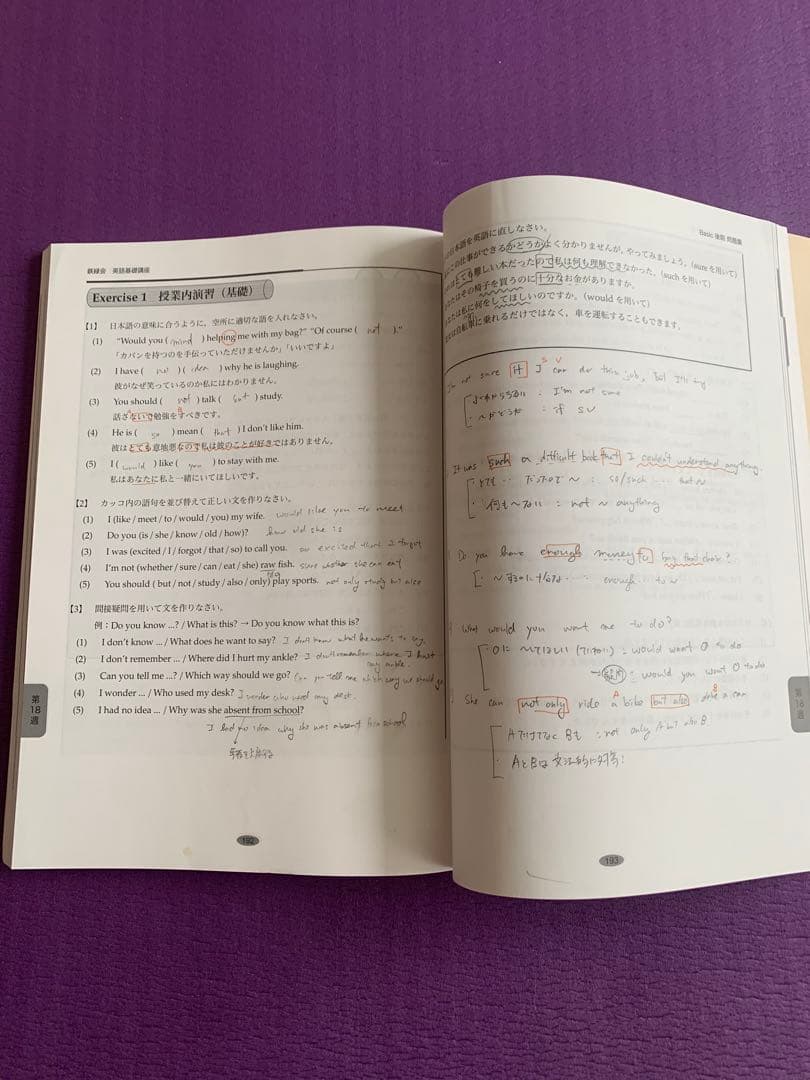 鉄緑会 英語基礎講座
Exercise 1 授業内演習(基礎)
【1】 日本語の意味に合うように,空所に適切な語を入れなさい。
(1) "Would you ( mind ) helping me with my bag?" "Of course ( not )."
「カバンを持つのを手伝っていただけませんか」「いいですよ」
(2) I have ( no ) ( idea ) why he is laughing.
彼がなぜ笑っているのか私にはわかりません。
(3) You should ( not ) talk ( but ) study.
話さないで勉強をすべきです。
(4) He is ( so ) mean ( that ) I don't like him.
彼はとても意地悪なので私は彼のことが好きではありません。
(5) I ( would ) like ( you ) to stay with me.
私はあなたに私と一緒にいてほしいです。
【2】 カッコ内の語句を並び替えて正しい文を作りなさい。
(1) I (like / meet / to / would / you) my wife. would like you to meet
(2) Do you (is / she / know / old / how)? how old she is
(3) I was (excited / I / forgot / that / so) to call you. so excited that I forgot
(4) I'm not (whether / sure / can / eat / she) raw fish. sure whether she can eat
(5) You should (but / not / study / also / only) play sports. not only study but also
【3】 間接疑問を用いて文を作りなさい。
例:Do you know ...? / What is this? → Do you know what this is?
(1) I don't know ... / What does he want to say? I don't know what he wants to say.
(2) I don't remember ... / Where did I hurt my ankle? I don't remember where I hurt
my ankle.
(3) Can you tell me ...? / Which way should we go? Can you tell me which way we should go
(4) I wonder ... / Who used my desk? I wonder who used my desk.
(5) I had no idea ... / Why was she absent from school?
I had no idea why she was absent from school
第18週
192
Basic 後期 問題集
日本語を英語に直しなさい。
この仕事ができるかどうかよく分かりませんが,やってみましょう。(sure を用いて)
とても難しい本だったので私は何も理解できなかった。(such を用いて)
その椅子を買うのに十分なお金がありますか。
私に何をしてほしいのですか。(would を用いて)
自転車に乗れるだけではなく,車を運転することもできます。
S V
I'm not sure if I can do this job, but I'll try
よくわからない : I'm not sure
〜かどうか : if SV
It was such a difficult book that I couldn't understand anything.
とても…だったので〜 : so/such … that 〜
何も〜ない : not 〜 anything
Do you have enough money to buy that chair?
〜するのに十分な… : enough … to 〜
What would you want me to do?
Oに〜してほしい : would want O to do
→ : would you want O to do
A B
She can not only ride a bike but also drive a car
AだけでなくBも : not only A but also B
AとBは文法的に対等!
第18週
193